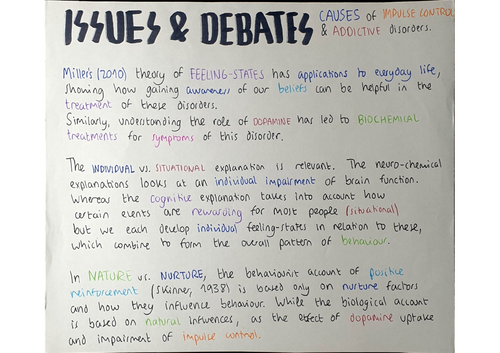 ISSUES & DEBATES CAUSES of IMPULSE CONTROL
& ADDICTIVE disorders.
Miller's (2010) theory of FEELING-STATES has applications to everyday life,
showing how gaining awareness of our beliefs can be helpful in the
treatment of these disorders.
Similarly, understanding the role of DOPAMINE has led to BIOCHEMICAL
treatments for symptoms of this disorder.
The INDIVIDUAL vs. SITUATIONAL explanation is relevant. The neuro-chemical
explanations looks at an individual impairment of brain function.
Whereas the cognitive explanation takes into account how
certain events are rewarding for most people (situational)
but we each develop individual feeling-states in relation to these,
which combine to form the overall pattern of behaviour.
In NATURE vs. NURTURE, the behaviourist account of positive
reinforcement (Skinner, 1938) is based only on nurture factors
and how they influence behaviour. While the biological account
is based on natural influences, as the effect of dopamine uptake
and impairment of impulse control.